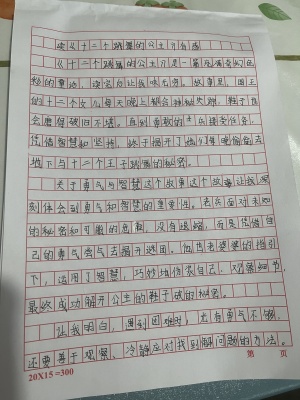 读《十二个跳舞的公主》有感
《十二个跳舞的公主》是一篇充满奇幻色
彩的童话，读完后让我味无穷。故事里，国王
的十二个女儿每天晚上都会神秘失踪，鞋子也
会磨得破旧不堪。直到勇敢的士兵接受任务，
凭借智慧和坚持，终于揭开了她们每晚偷偷去
地下与十二个王子跳舞的秘密。
关于勇气与智慧这个故事这个故事让我深
刻体会到勇气和智慧的重要性。老兵在面对未知
的秘密和可能的危险，没有退缩，而是凭借自
己的勇气尝试去揭开谜团。他在老婆婆的指引
下，运用了智慧，巧妙地伪装自己，观察细节，
最终成功解开公主的鞋子破的秘密。
让我明白，遇到困难时，光有勇气不够，
还要善于观察、冷静应对找到解问题的方法。
20X15=300
第 页